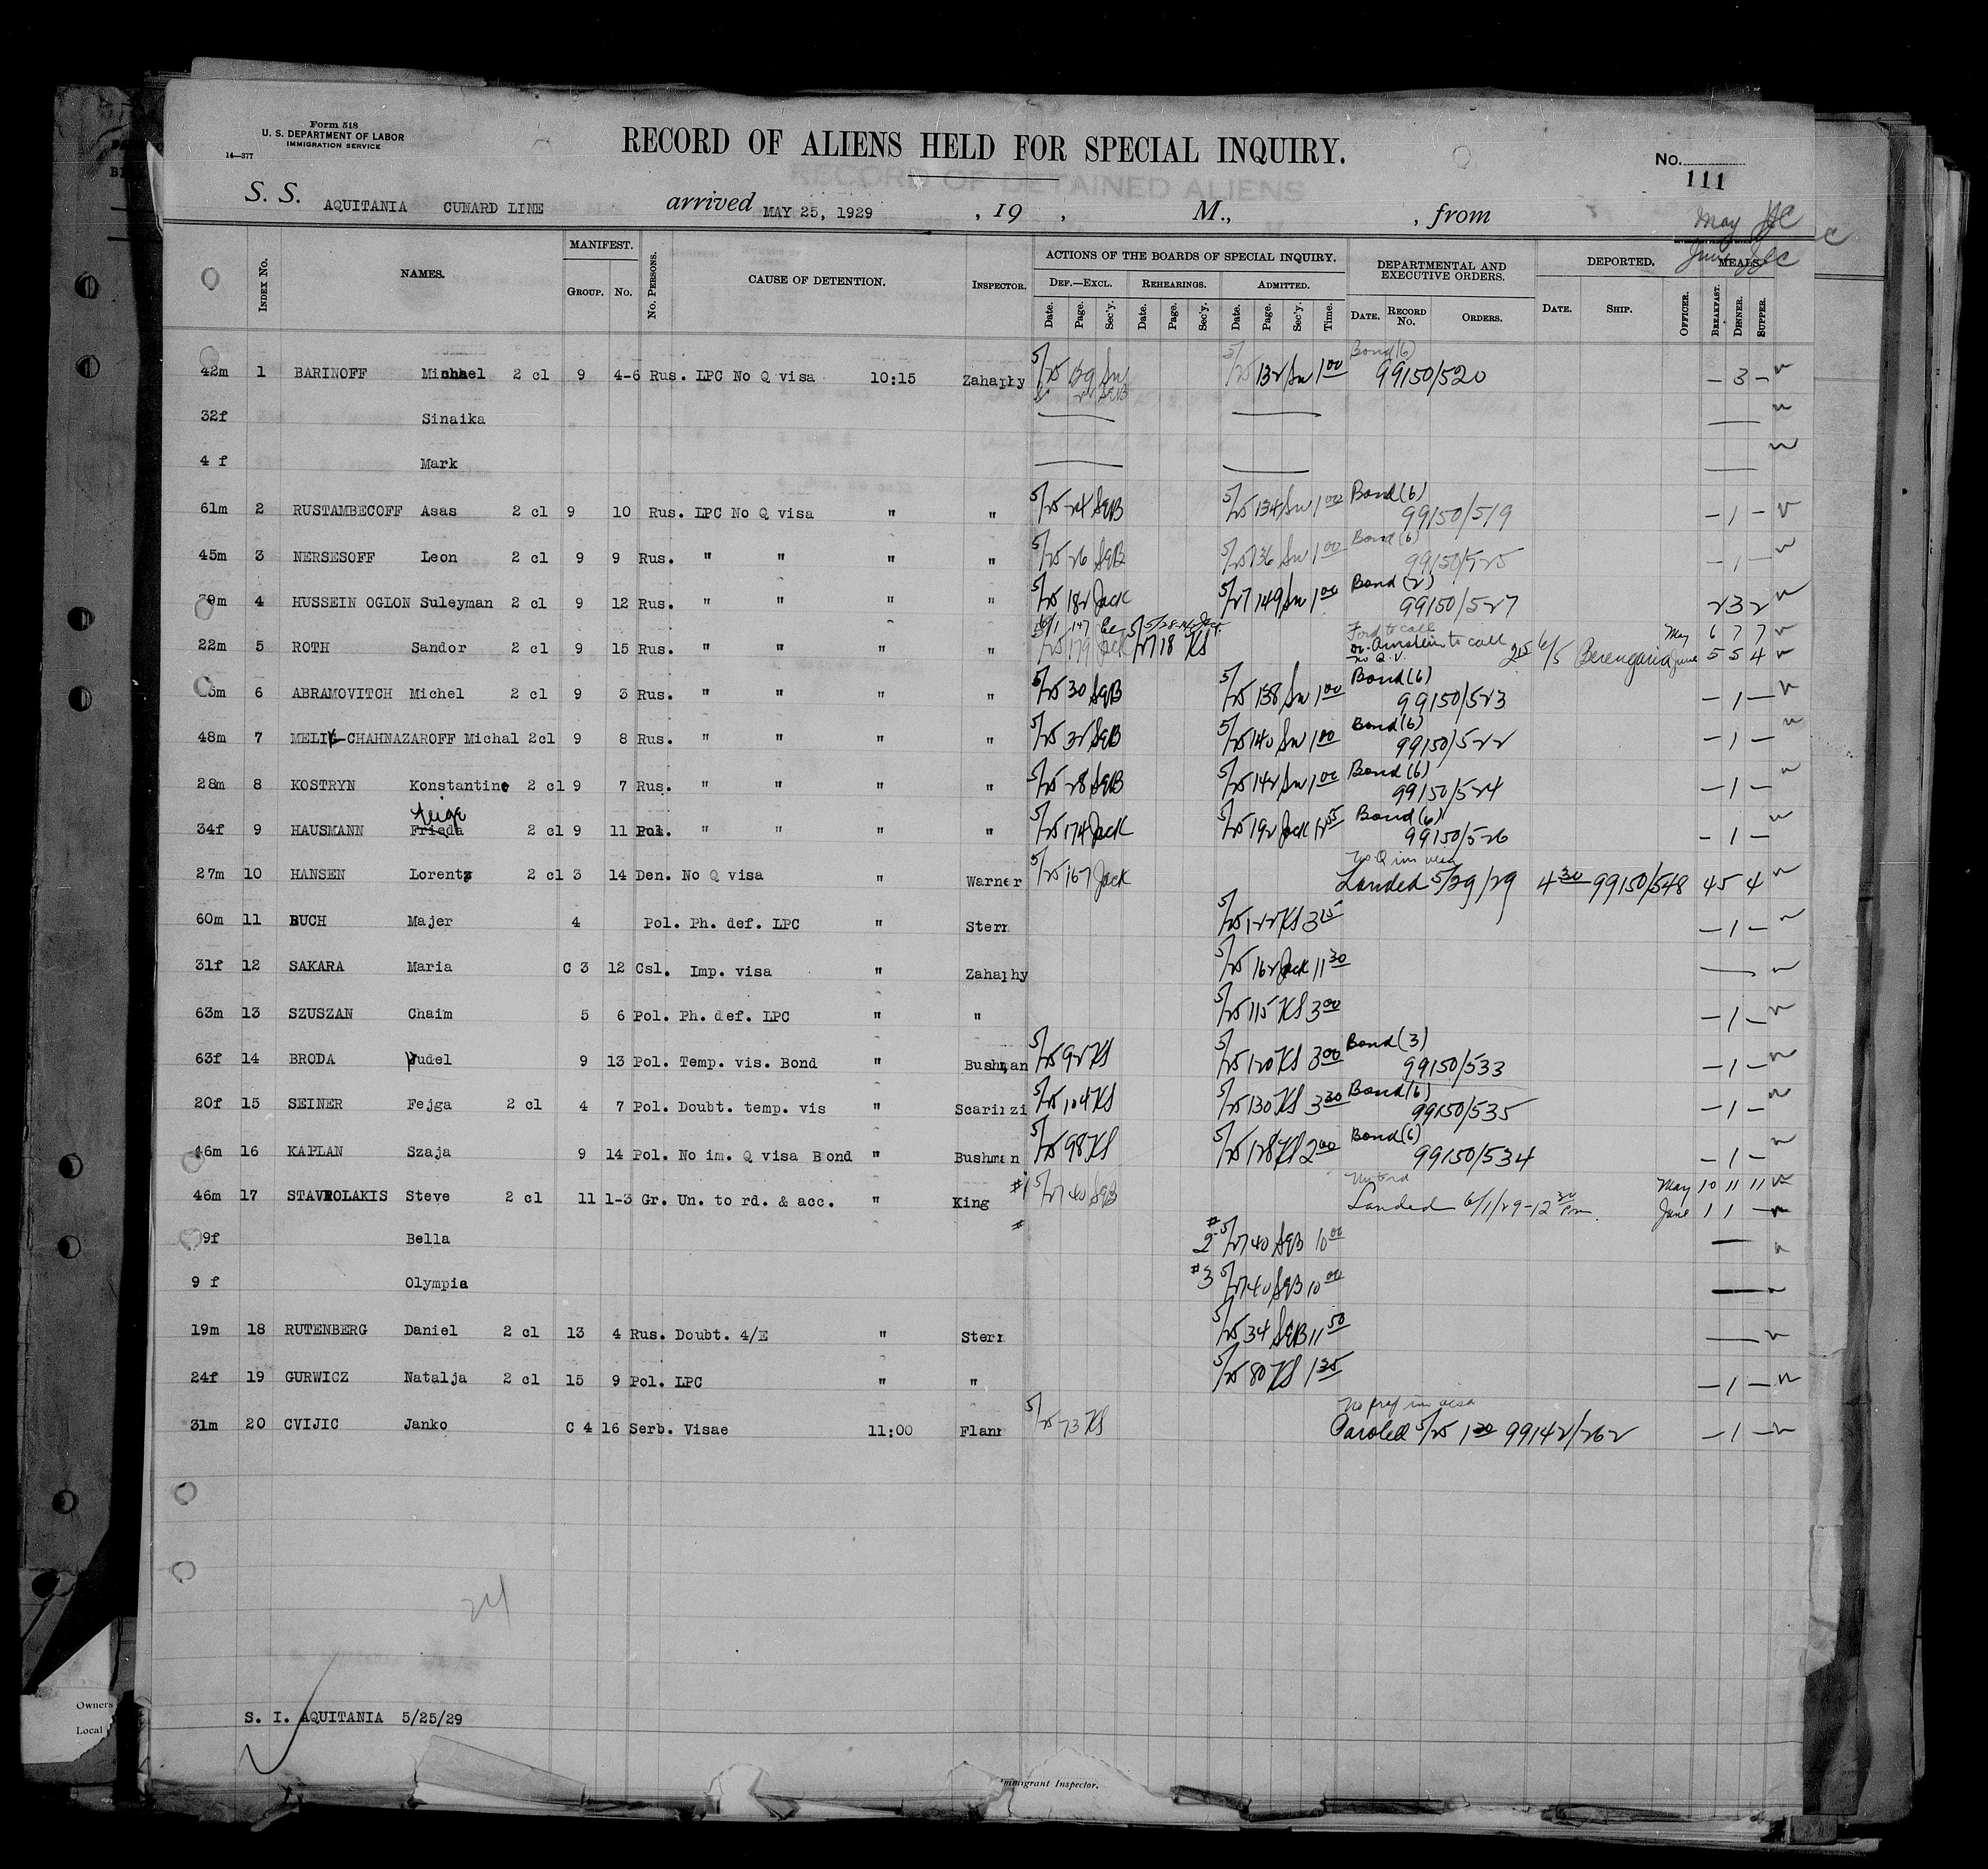 Form 518
U. S. DEPARTMENT OF LABOR
IMMIGRATION SERVICE
14—377
RECORD OF ALIENS HELD FOR SPECIAL INQUIRY.
RECORD OF DETAINED ALIENS
No.
111
S. S. AQUITANIA CUNARD LINE arrived MAY 25, 1929 , 19 , M., , from
May
June
INDEX No. NAMES. MANIFEST. GROUP. No. No. PERSONS. CAUSE OF DETENTION. INSPECTOR. ACTIONS OF THE BOARDS OF SPECIAL INQUIRY. DEPARTMENTAL AND EXECUTIVE ORDERS. DEPORTED. MEALS.
DEF.—EXCL. REHEARINGS. ADMITTED.
Date. Page. Sec'y. Date. Page. Sec'y. Date. Page. Sec'y. Time. DATE. RECORD No. ORDERS. DATE. SHIP. OFFICER. BREAKFAST. DINNER. SUPPER.
42m 1 BARINOFF Michael 2 cl 9 4-6 Rus. LPC No Q visa 10:15 Zahaphy 5/25 5/25 132 1 00 Bond (6) 99150/520 — 3 —
32f Sinaika
4 f Mark
61m 2 RUSTAMBECOFF Asas 2 cl 9 10 Rus. LPC No Q visa " " 5/25 24 SQB 5/25 134 1 00 Bond (6) 99150/519 — 1 —
45m 3 NERSESOFF Leon 2 cl 9 9 Rus. " " " " 5/25 26 SQB 5/25 136 1 00 Bond (6) 99150/525 — 1 —
39m 4 HUSSEIN OGLON Suleyman 2 cl 9 12 Rus. " " " " 5/25 182 Jack 5/27 149 1 00 Bond (2) 99150/527 2 3 2
22m 5 ROTH Sandor 2 cl 9 15 Rus. " " " " 5/25 179 Jack 5/27 18 KS to call no Q.V. 6/5 Berengaria May 6 7 7 June 5 5 4
6 ABRAMOVITCH Michel 2 cl 9 3 Rus. " " " " 5/25 30 SQB 5/25 138 1 00 Bond (6) 99150/523 — 1 —
48m 7 MELIK-CHAHNAZAROFF Michal 2cl 9 8 Rus. " " " " 5/25 32 SQB 5/25 140 1 00 Bond (6) 99150/522 — 1 —
28m 8 KOSTRYN Konstantine 2 cl 9 7 Rus. " " " " 5/25 28 SQB 5/25 142 1 00 Bond (6) 99150/524 — 1 —
34f 9 HAUSMANN Frieda 2 cl 9 11 Pol. " " " " 5/25 174 Jack 5/25 192 Jack 12 55 Bond (6) 99150/526 — 1 —
27m 10 HANSEN Lorentz 2 cl 3 14 Den. No Q visa " Warner 5/25 167 Jack No Q im visa Landed 5/29/29 4 30 99150/548 4 5 4
60m 11 BUCH Majer 4 Pol. Ph. def. LPC " Stern 5/25 122 KS 3 15 — 1 —
31f 12 SAKARA Maria C 3 12 Csl. Imp. visa " Zahaphy 5/25 162 Jack 11 30
63m 13 SZUSZAN Chaim 5 6 Pol. Ph. def. LPC " " 5/25 115 KS 3 00 — 1 —
63f 14 BRODA Yudel 9 13 Pol. Temp. vis. Bond " Bushman 5/25 92 KS 5/25 120 KS 3 00 Bond (3) 99150/533 — 1 —
20f 15 SEINER Fejga 2 cl 4 7 Pol. Doubt. temp. vis " Scarinzi 5/25 104 KS 5/25 130 KS 3 30 Bond (6) 99150/535 — 1 —
46m 16 KAPLAN Szaja 9 14 Pol. No im. Q visa Bond " Bushman 5/25 98 KS 5/25 128 KS 2 00 Bond (6) 99150/534 — 1 —
46m 17 STAVROLAKIS Steve 2 cl 11 1-3 Gr. Un. to rd. & acc. " King #1 5/27 40 SQB Landed 6/1/29 - 12 30 Pm. May 10 11 11 June 1 1 —
9f Bella #2 5/27 40 SQB 10 00
9 f Olympia #3 5/27 40 SQB 10 00
19m 18 RUTENBERG Daniel 2 cl 13 4 Rus. Doubt. 4/E " Stern 5/25 34 SQB 11 50
24f 19 GURWICZ Natalja 2 cl 15 9 Pol. LPC " " 5/25 80 KS 1 35 — 1 —
31m 20 CVIJIC Janko C 4 16 Serb. Visae 11:00 Flann 5/25 73 KS No pref im visa Paroled 5/25 1 30 99142/262 — 1 —
24
S. I. AQUITANIA 5/25/29
Immigrant Inspector.
Owners
Local